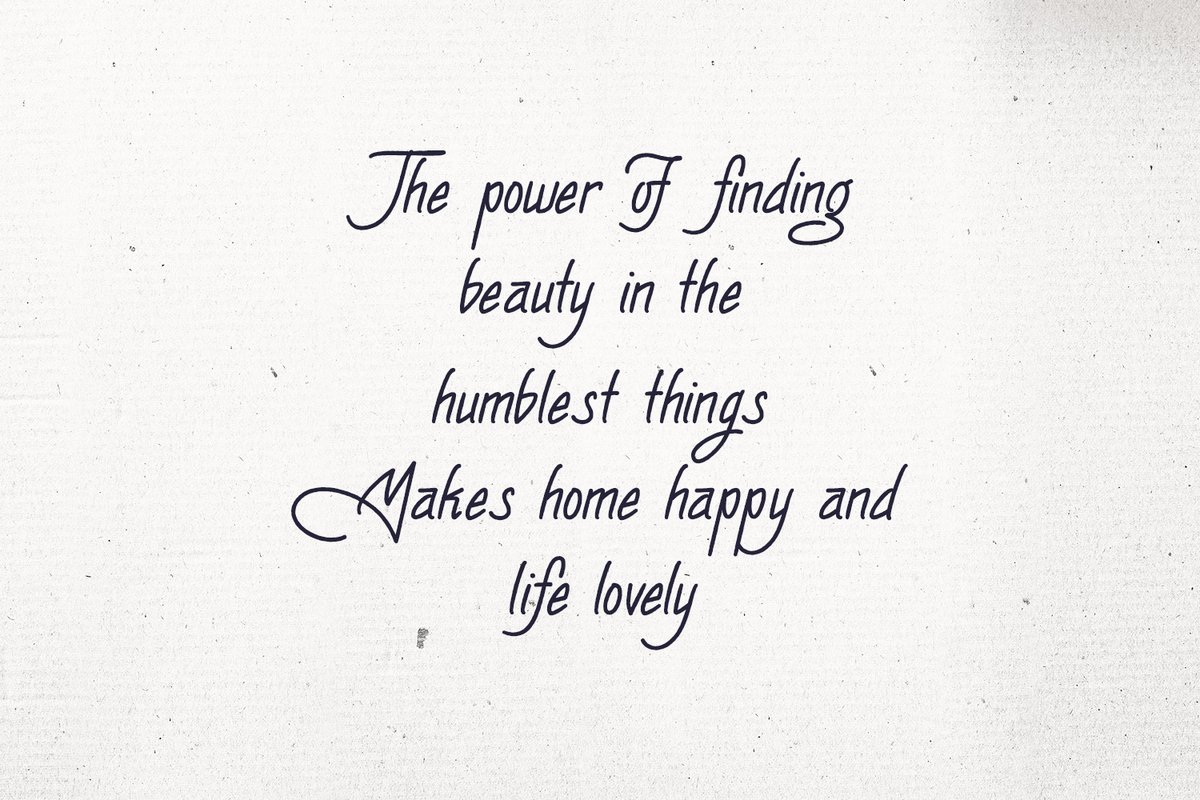 The power of finding
beauty in the
humblest things
Makes home happy and
life lovely